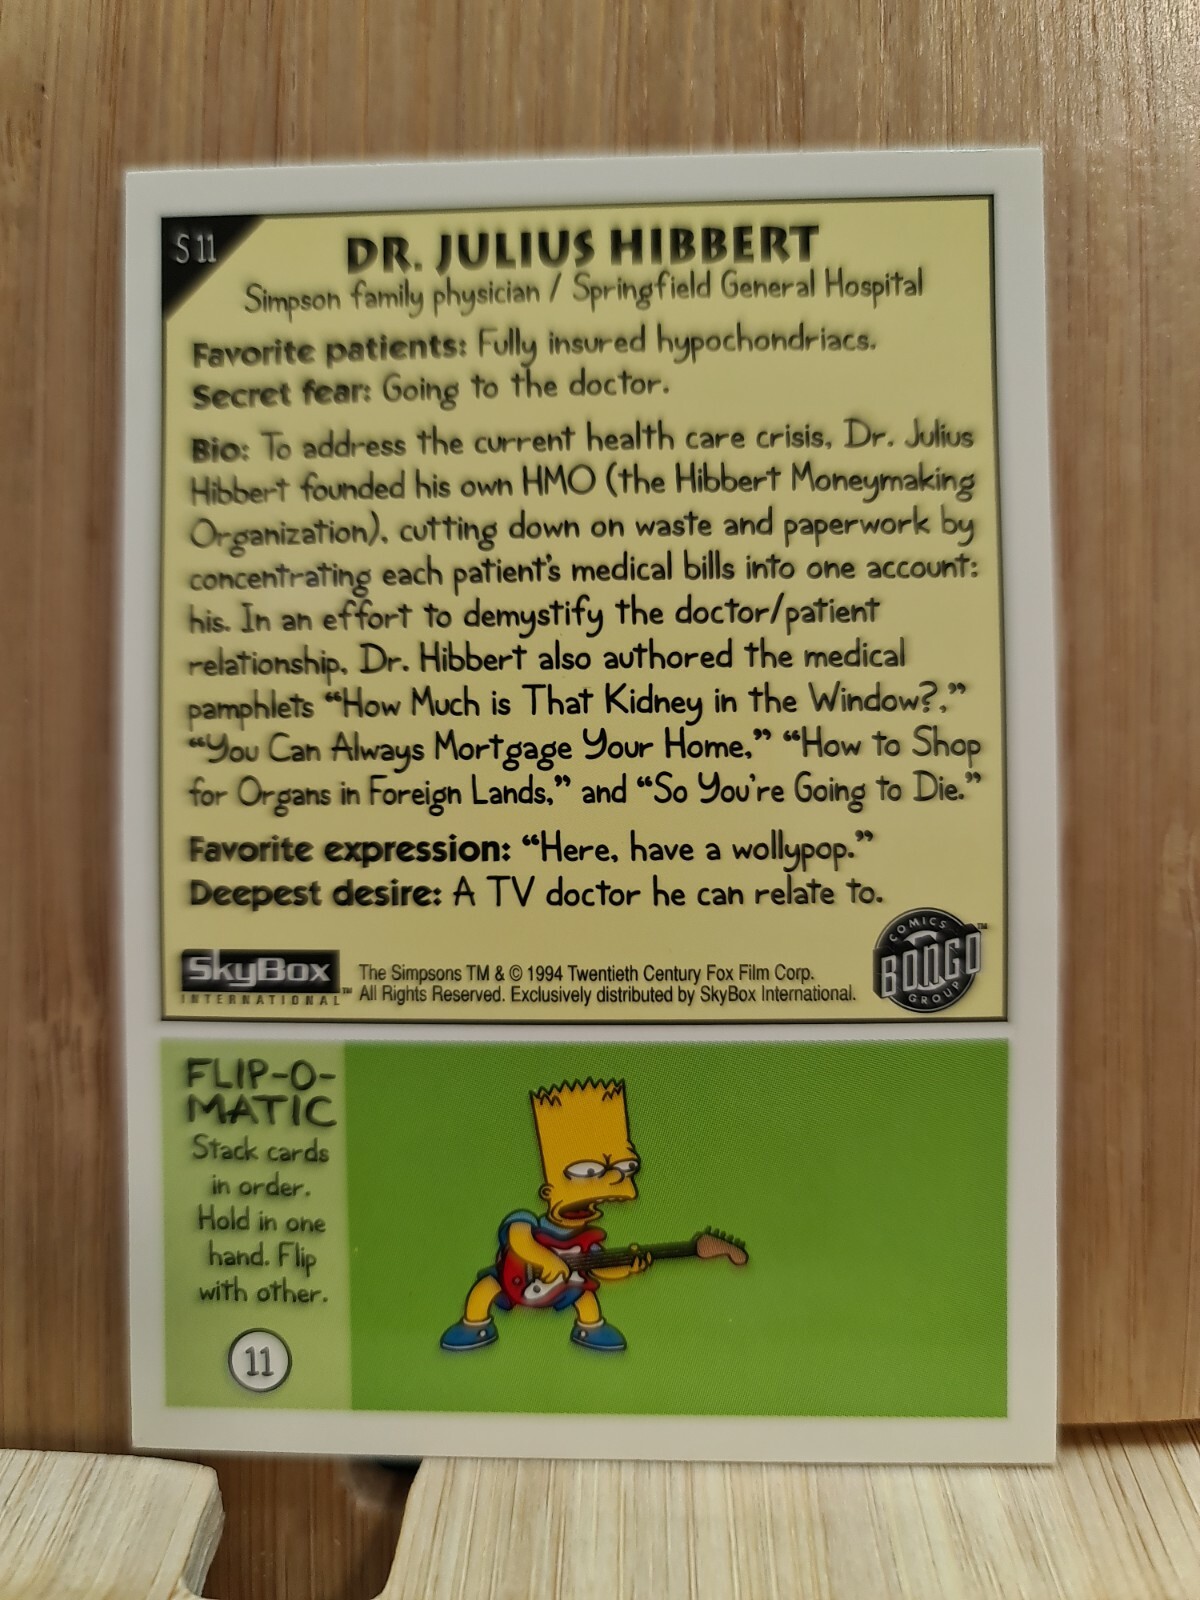 S 11
DR. JULIUS HIBBERT
Simpson family physician / Springfield General Hospital
Favorite patients: Fully insured hypochondriacs.
Secret fear: Going to the doctor.
Bio: To address the current health care crisis, Dr. Julius
Hibbert founded his own HMO (the Hibbert Moneymaking
Organization), cutting down on waste and paperwork by
concentrating each patient's medical bills into one account:
his. In an effort to demystify the doctor/patient
relationship, Dr. Hibbert also authored the medical
pamphlets “How Much is That Kidney in the Window?,”
“You Can Always Mortgage Your Home,” “How to Shop
for Organs in Foreign Lands,” and “So You're Going to Die.”
Favorite expression: “Here, have a wollypop.”
Deepest desire: A TV doctor he can relate to.
SkyBox
INTERNATIONAL™
The Simpsons TM & © 1994 Twentieth Century Fox Film Corp.
All Rights Reserved. Exclusively distributed by SkyBox International.
COMICS
BONGO™
GROUP
FLIP-O-
MATIC
Stack cards
in order.
Hold in one
hand. Flip
with other.
11